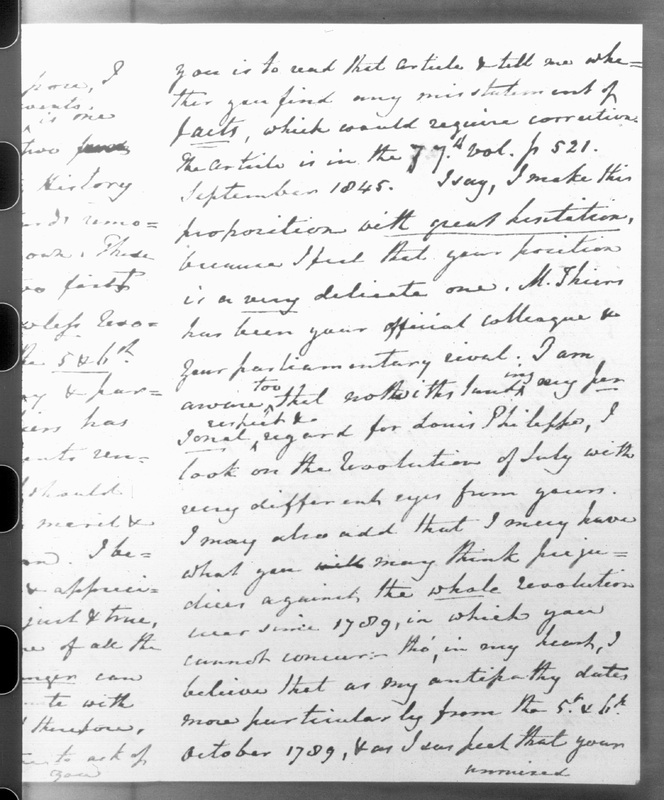 pose, I
events.
is one
two
History
ards remo=
own. These
two facts
Revo=
the 5 & 6th
& par=
has
ents ren=
should
merit &
I be=
& appreci=
just & true,
of all the
can
with
therefore,
to ask of
you
you is to read that article & tell me whe=
ther you find any misstatement of
facts, which would require correction.
The article is in the 77.th vol. p 521.
September 1845. I say, I make this
proposition with great hesitation,
because I feel that your position
is a very delicate one. M. Thiers
has been your official colleague &
your parliamentary rival. I am
aware too, that notwithstanding my per
sonal respect & regard for Louis Philippe, I
look on the Revolution of July with
very different eyes from yours.
I may also add that I may have
what you will may think preju=
dices against the whole revolution
ever since 1789, in which you
cannot concur - tho', in my heart, I
believe that as my antipathy dates
more particularly from the 5.th & 6th.
October 1789, & as I suspect that your
unmixed